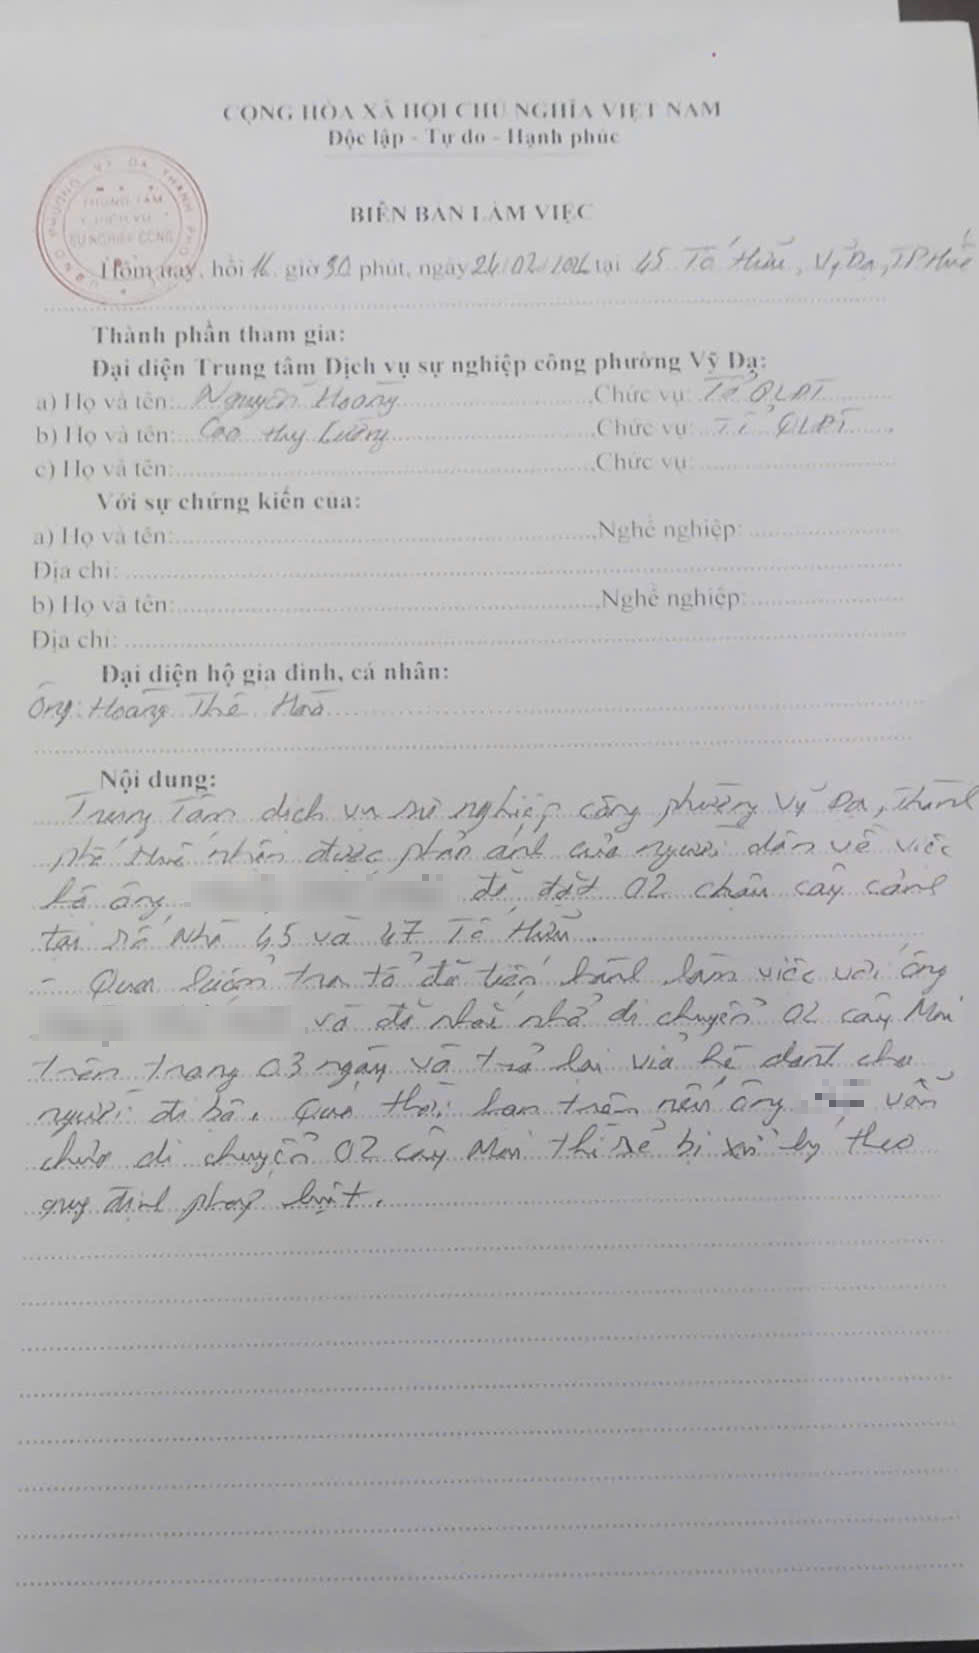 CỘNG HÒA XÃ HỘI CHỦ NGHĨA VIỆT NAM
Độc lập - Tự do - Hạnh phúc
UBND PHƯỜNG VỸ DẠ THÀNH PHỐ
TRUNG TÂM
DỊCH VỤ
SỰ NGHIỆP CÔNG
BIÊN BẢN LÀM VIỆC
Hôm nay, hồi 16 giờ 30 phút, ngày 24/02/2026 tại 45 Tố Hữu, Vỹ Dạ, TP Huế
Thành phần tham gia:
Đại diện Trung tâm Dịch vụ sự nghiệp công phường Vỹ Dạ:
a) Họ và tên: Nguyễn Hoàng, Chức vụ: Tổ QLĐT
b) Họ và tên: Cao Huy Cường, Chức vụ: Tổ QLĐT
c) Họ và tên:, Chức vụ:
Với sự chứng kiến của:
a) Họ và tên:, Nghề nghiệp:
Địa chỉ:
b) Họ và tên:, Nghề nghiệp:
Địa chỉ:
Đại diện hộ gia đình, cá nhân:
Ông: Hoàng Thế
Nội dung:
Trung Tâm dịch vụ sự nghiệp công phường Vỹ Dạ, thành
phố Huế nhận được phản ánh của người dân về việc
hộ ông để đặt 02 chậu cây cảnh
tại số nhà 45 và 47 Tố Hữu.
- Qua kiểm tra tổ đã tiến hành làm việc với ông
và đã nhắc nhở di chuyển 02 cây Mai
trên trong 03 ngày và trả lại vỉa hè dành cho
người đi bộ. Quá thời hạn trên nếu ông vẫn
chưa di chuyển 02 cây Mai thì sẽ bị xử lý theo
quy định pháp luật.